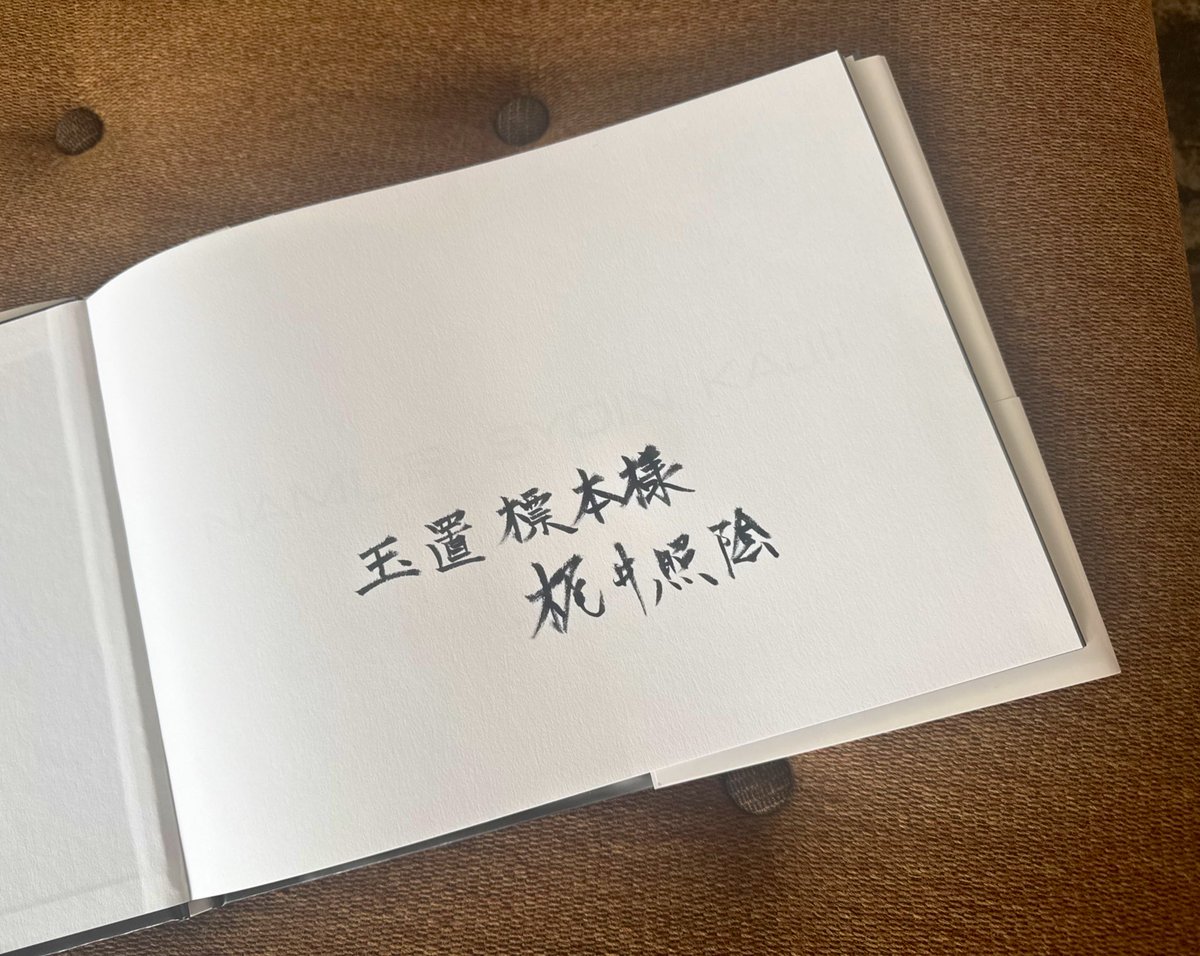 玉置標本様
梶井照陰